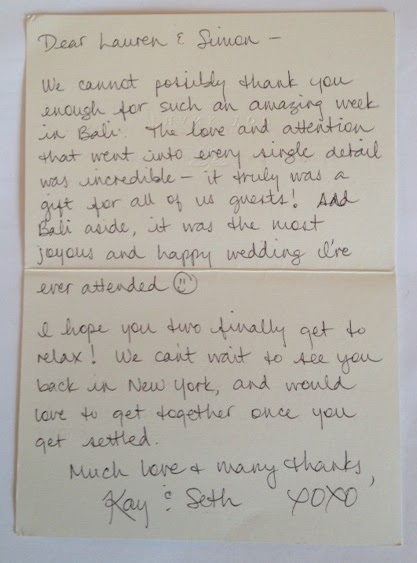 Dear Lauren & Simon —
We cannot possibly thank you
enough for such an amazing week
in Bali. The love and attention
that went into every single detail
was incredible — it truly was a
gift for all of us guests! And
Bali aside, it was the most
joyous and happy wedding I've
ever attended ☺
I hope you two finally get to
relax! We can't wait to see you
back in New York, and would
love to get together once you
get settled.
Much love & many thanks,
Kay & Seth XOXO